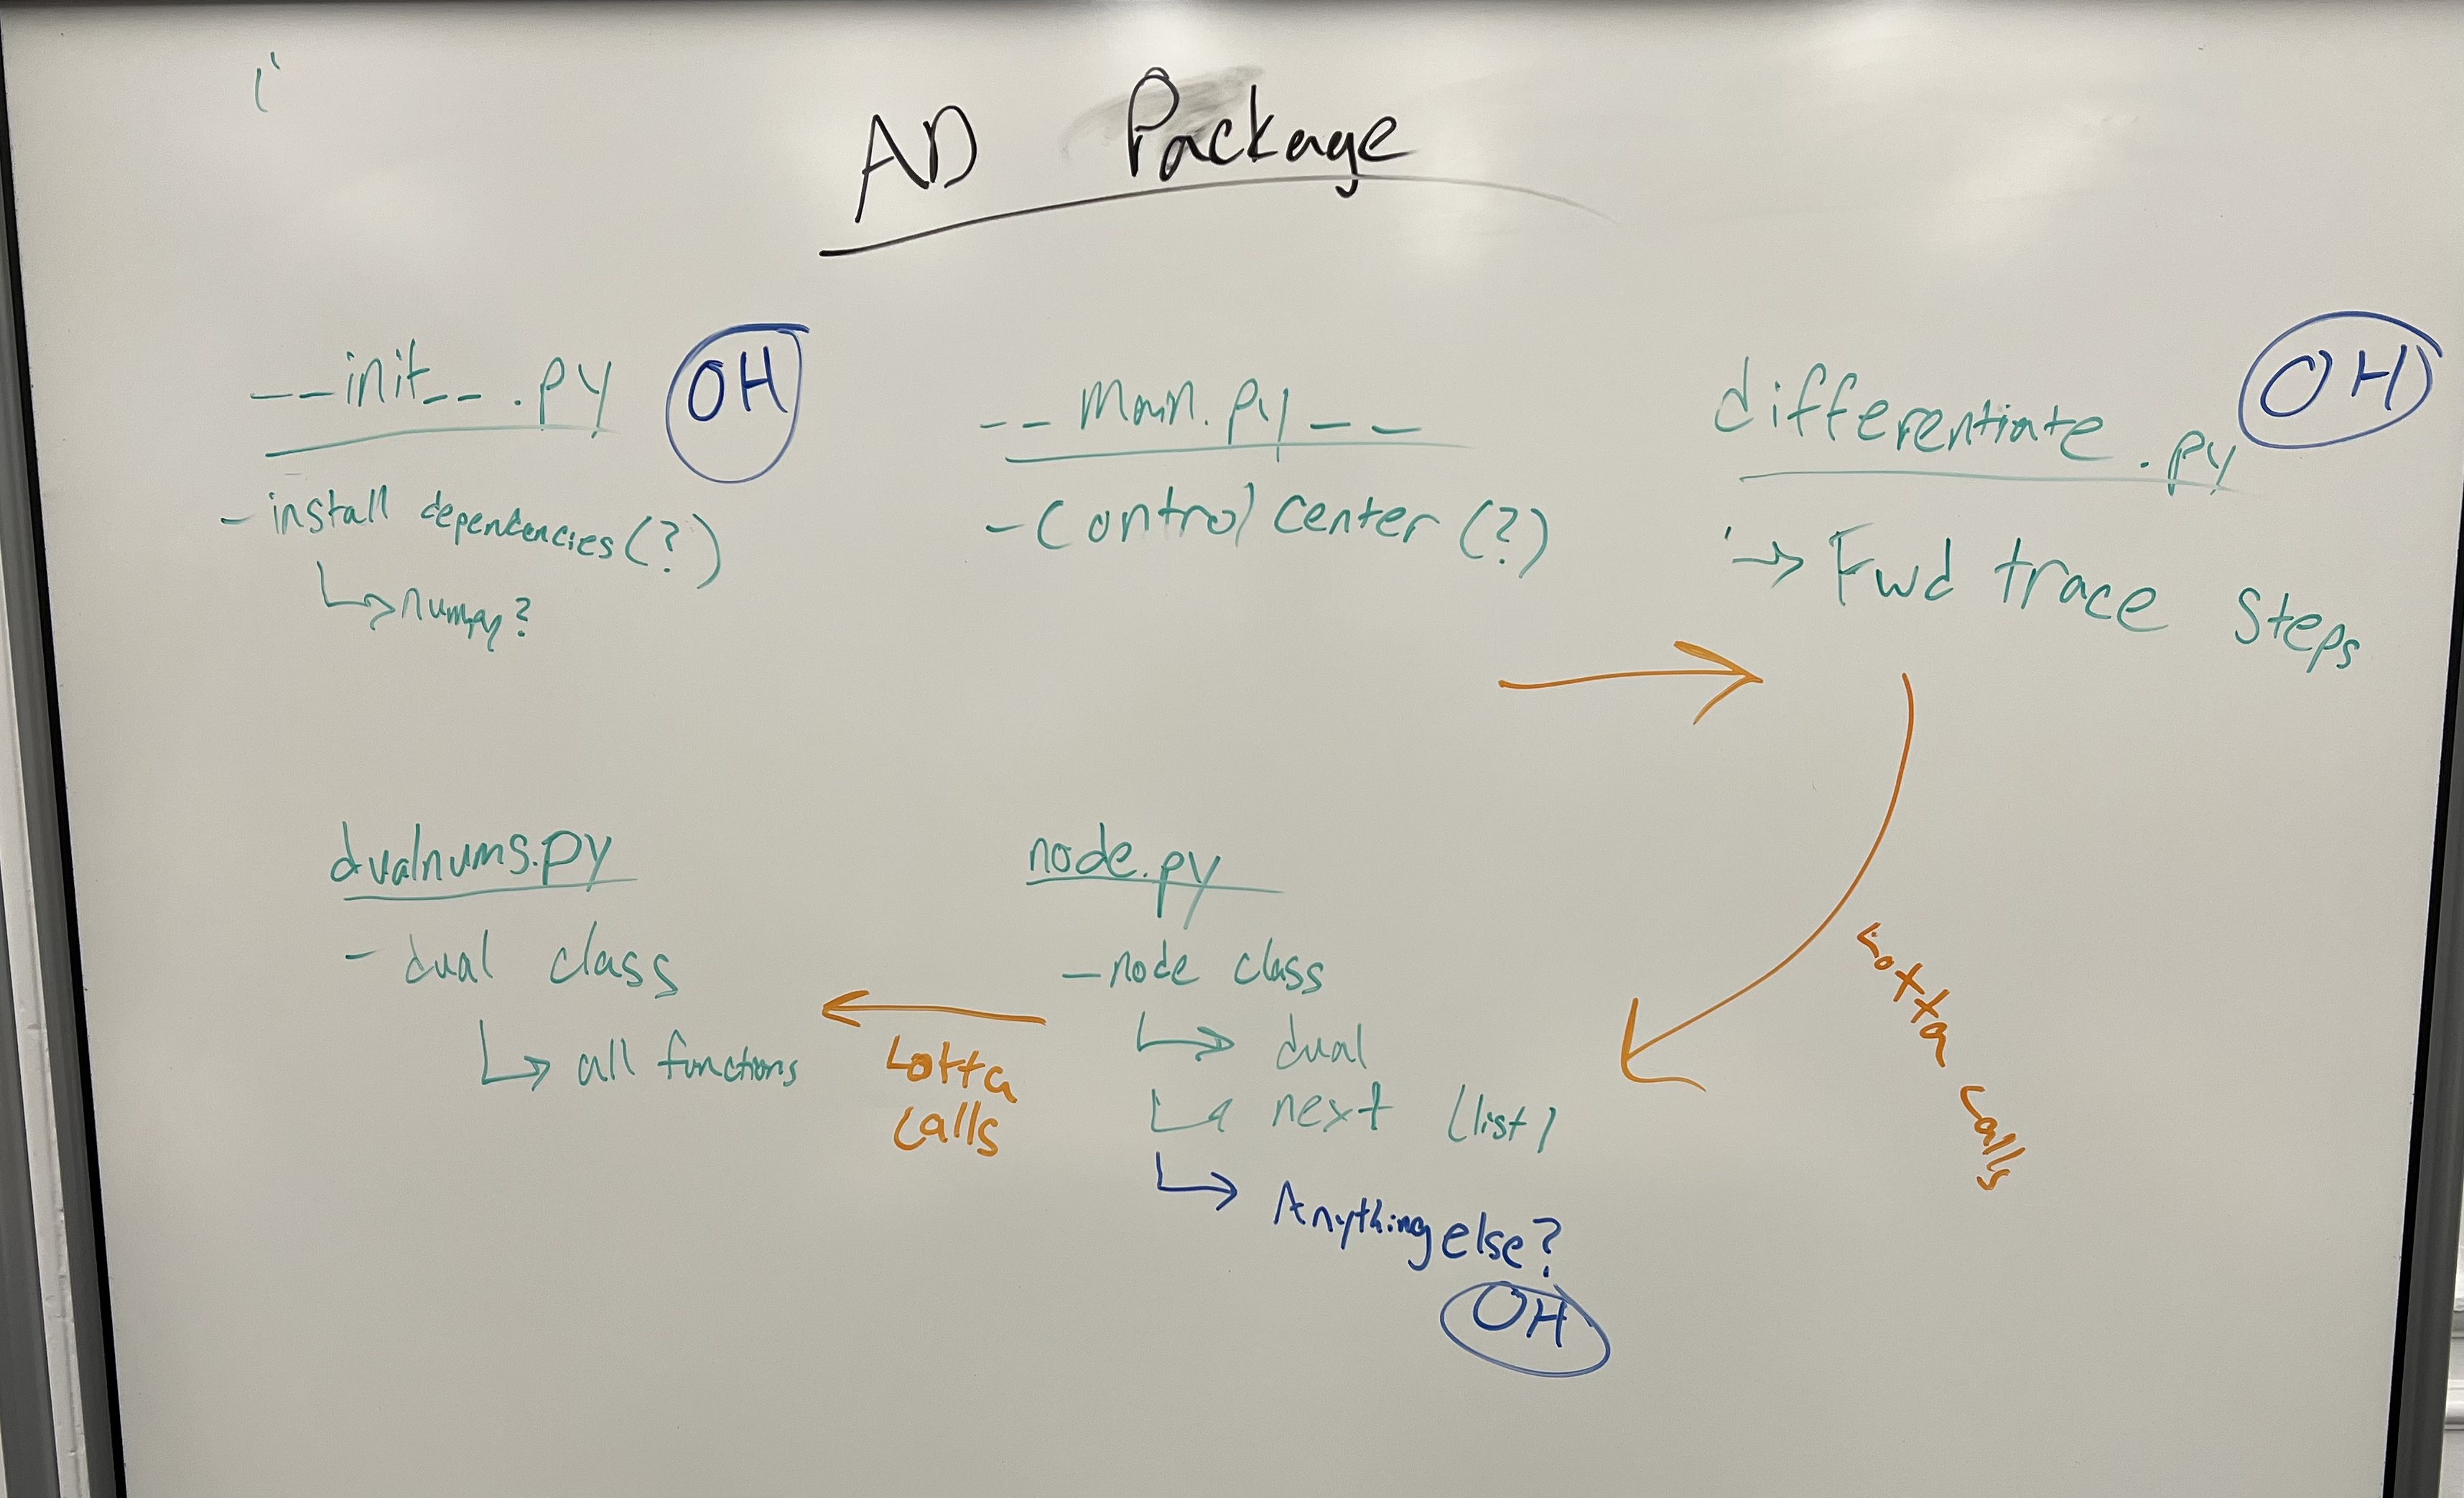 AD Package
__init__.py OH
- install dependencies (?)
↳ numpy?
__main.py__
- Control Center (?)
differentiate.py OH
→ Fwd trace steps
dualnums.py
- dual class
↳ all functions
Lotta
calls
node.py
- node class
↳ dual
↳ next (list)
↳ Anything else?
OH
Lotta calls